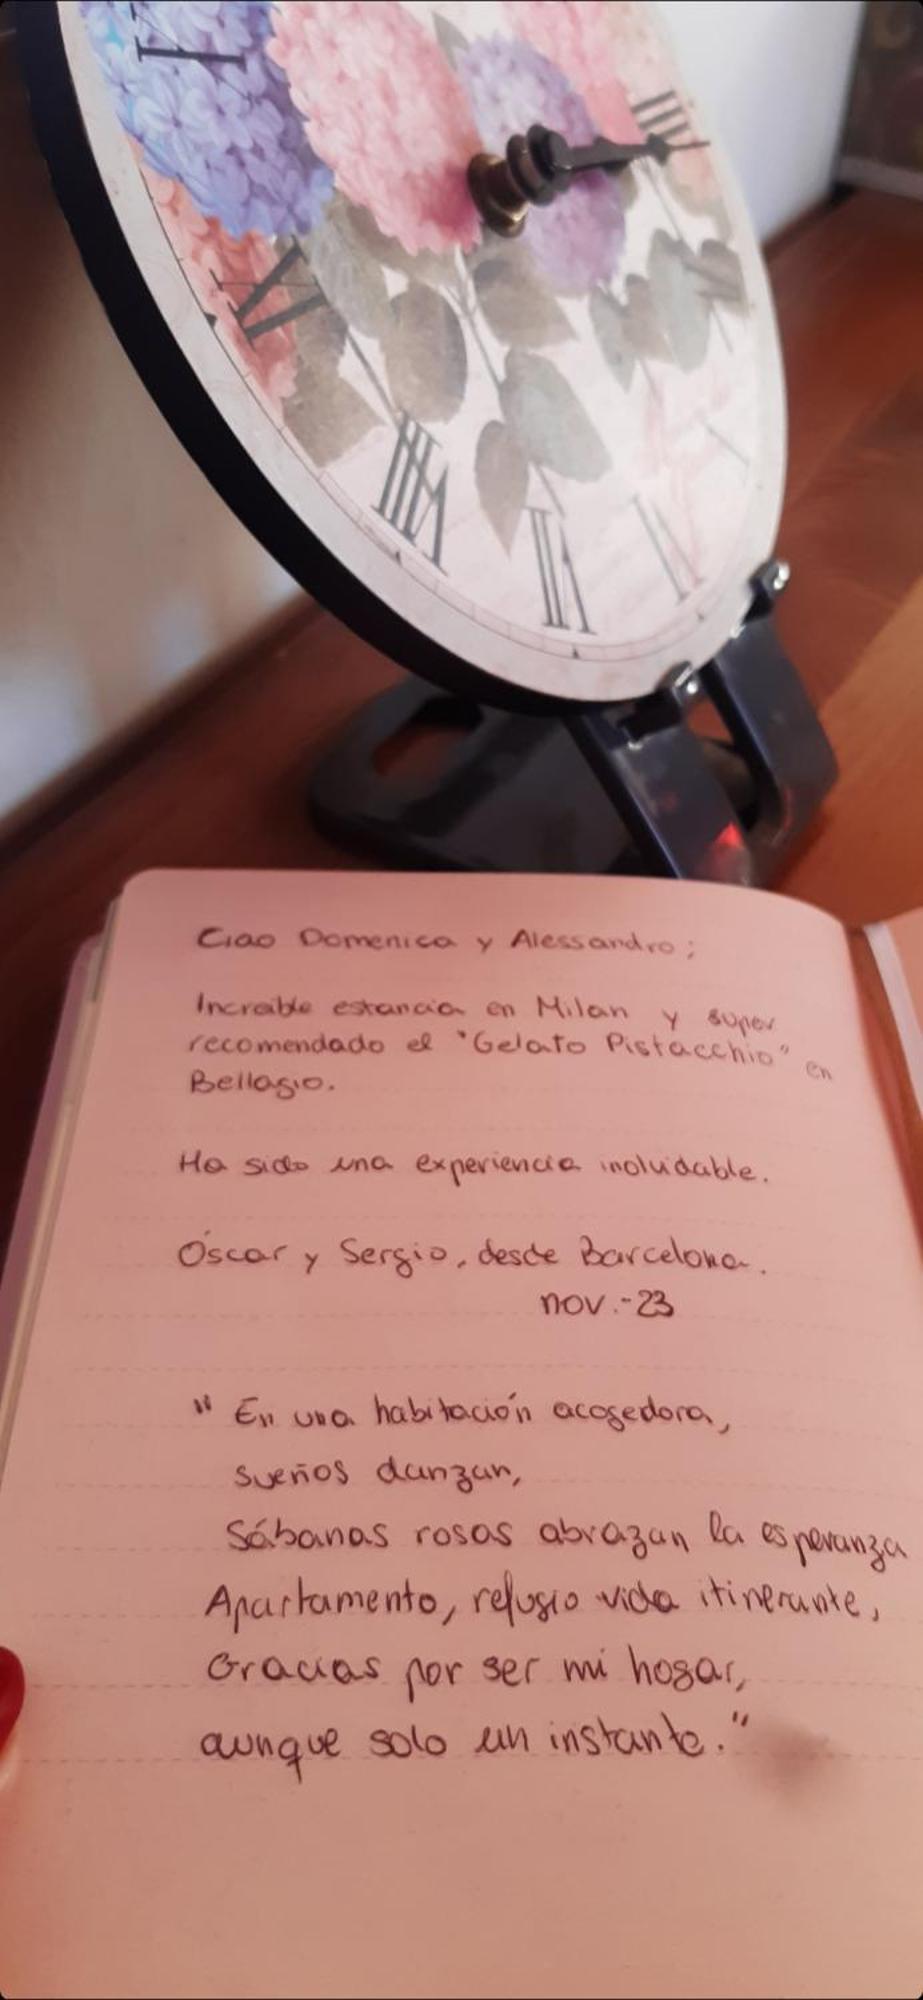 Ciao Domenica y Alessandro;
Increible estancia en Milan y super
recomendado el "Gelato Pistacchio" en
Bellagio.
Ha sido una experiencia inoluidable.
Óscar y Sergio, desde Barcelona.
nov.-23
"En una habitación acogedora,
sueños danzan,
Sábanas rosas abrazan la esperanza
Apartamento, refugio vida itinerante,
Gracias por ser mi hogar,
aunque solo un instante."